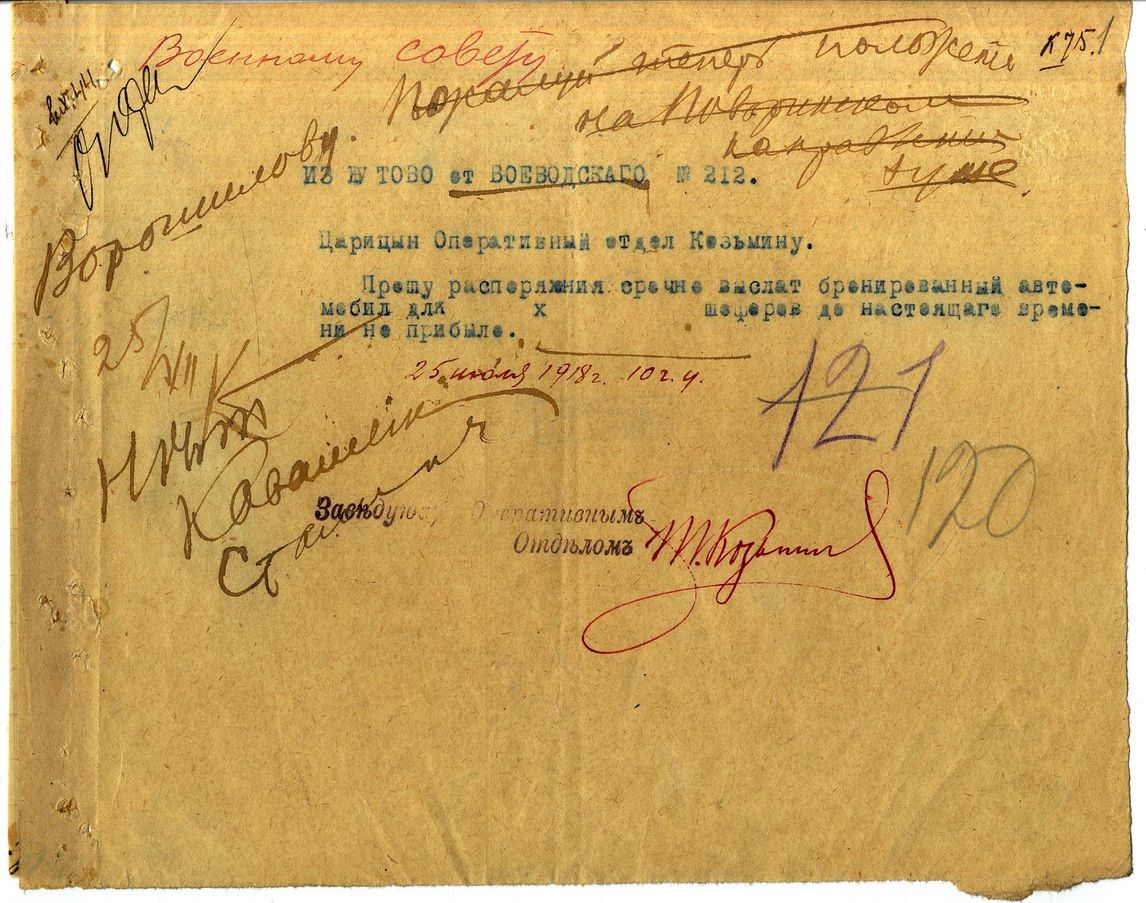 Военному совету
К75.1
теперь
на Поворинском
направлении
Ворошилову.
ИЗ ЖУТОВО от ВОЕВОДСКАГО № 212.
Царицын Оперативный отдел Козьмину.
Прошу распоряжния срочно выслат бронированный авто-
мобил для х шоферов до настоящаго време-
ни не прибыло.
25 июля 1918г. 10 г. у.
25/VII
121
120
Сталин
Завѣдующ Оперативнымъ
Отдѣломъ